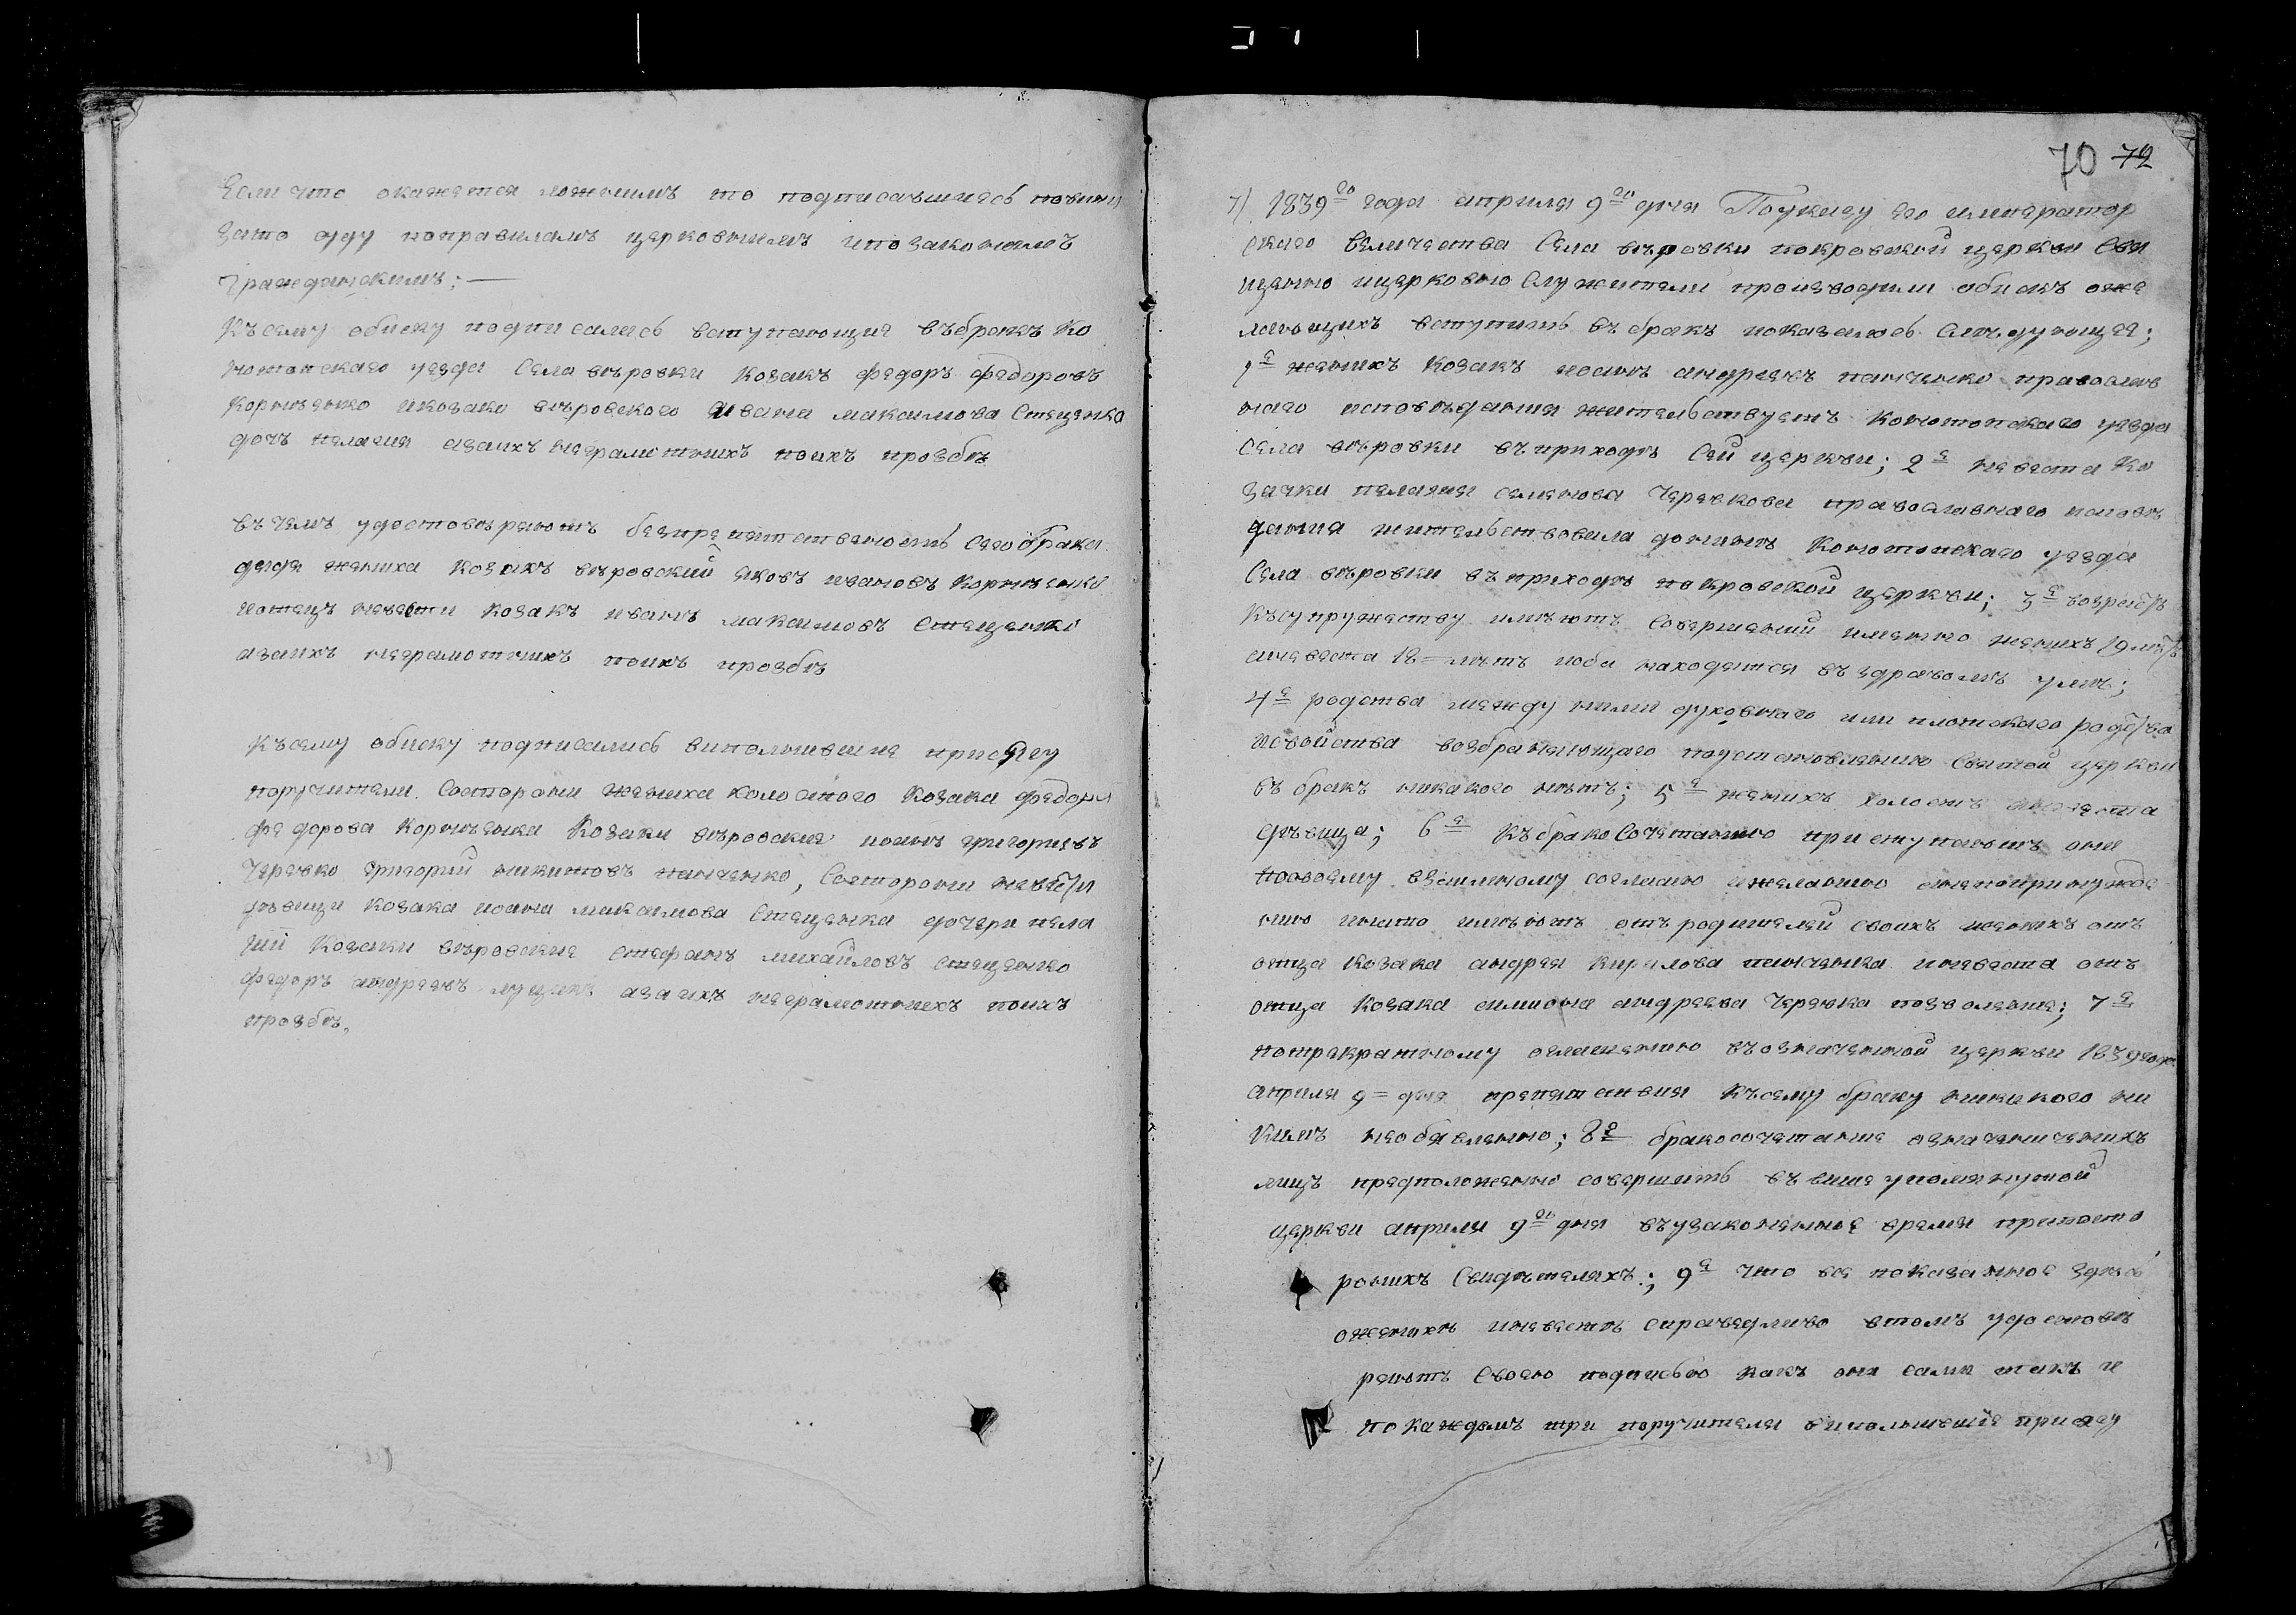 Если что окажется ложнымъ то подписавшиесь повини
зато суду поправиламъ церковнимъ ипозаконамъ
гражданскимъ;—
Късему обиску подписались вступающия въбракъ Ко
нотопскаго уезда Села вѣровки Козакъ федоръ федоровъ
Корнѣенко икозака вѣровского ивана макаимова Стеценка
дочъ пелагия азаихъ неграмотнихъ поихъ прозбѣ
въчемъ удостовѣряютъ безпрепятственость сего брака
дядя жениха Козакъ вѣровский яковъ ивановъ Корнѣенко
иотецъ невести козакъ иванъ макаимовъ Стеценко
азаихъ неграмотнихъ поихъ прозбѣ
Късему обиску подписались виполнившия присягу
поручители Состорони жениха холостого Козака федора
федорова Корнѣенка Козаки вѣровския иоанъ григориевъ
Черевко григорий никитовъ панченко, Состорони невести
дѣвици козака иоана макаимова Стеценка дочери пела
гии Козаки вѣровския стефанъ михайловъ стеценко
федоръ андреевъ азаихъ неграмотнихъ поихъ
прозбѣ.
70 72
7) 1839го года априля 9го дня Поуказу его император
скаго величества Села вѣровки покровской церкви Свя
щенно ицерковно Служители производили обискъ оже
лающихъ вступить въбракъ показалось Слѣдующее;
1е женихъ Козакъ иоанъ андреевъ панченко православ
наго исповѣдания жительствуетъ Конотопскаго уезда
Села вѣровки въприходѣ Сей церкви; 2е невеста Ко
зачки пелагия семенова Черевкова православнаго исповѣ
дания жительствовала донинѣ Конотопскаго уезда
Села вѣровки въприходѣ покровской церкви; 3е возрастъ
Късупружеству имѣютъ Совершений именно женихъ 19 лѣтъ
аневеста 18= лѣтъ иоба находятся въздравомъ умѣ;
4е родства между ними духовнаго или плотскаго родства
исвойства возбраняющаго поустановлению Святой церкви
въбракъ никакого нѣтъ; 5е женихъ холостъ аневеста
дѣвица; 6е Къбракосочетанию приступаютъ они
посвоему взаимному согласию ижеланию анепопринужде
нию инато имѣютъ отъродителей своихъ женихъ отъ
отца козака андрея Кирилова панченка иневеста отъ
отца козака симиона андреева Черевка позволение; 7е
потрекратному оглашению въозначенной церкви 1839года
априля 9= дня препятствия Късему браку никакого ни
Кимъ необявленно; 8е бракосочетание означенниченихъ
лицъ предположенно совершить въвише упомянутой
церкви априля 9го дня въузаконенное время припосто
роних Свидѣтеляхъ; 9е Что все показанное здѣсь
оженихѣ иневестѣ справедливо втомъ удостовѣ
ряютъ Своею подписью какъ они сами такъ и
покаждомъ три поручителя виполнившие присягу